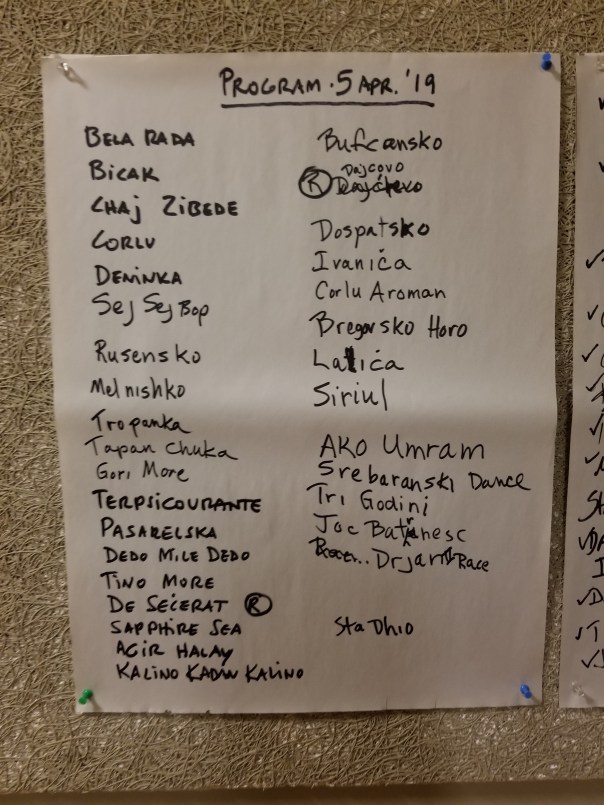 PROGRAM · 5 APR. '19
BELA RADA
BICAK
CHAJ ZIBEDE
CORLU
DENINKA
Sej Sej Bop
Rusensko
Melnishko
Tropanka
Tapan Chuka
Gori More
TERPSICOURANTE
PASARELSKA
DEDO MILE DEDO
TINO MORE
DE SEĆERAT R
SAPPHIRE SEA
AGIR HALAY
KALINO KADIN KALINO
Bufcansko
Dajcovo
R
Dospatsko
Ivanića
Corlu Aroman
Bregovsko Horo
Latića
Siriul
AKO Umram
Srebaranski Dance
Tri Godini
Joc Batrinesc
Drjan Race
Sta Dhio